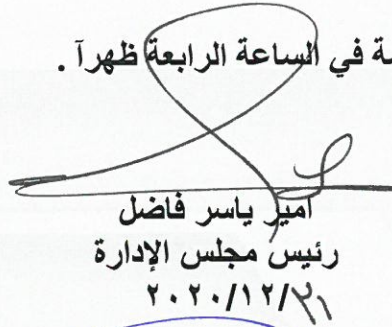 في الساعة الرابعة ظهرآ .
امير ياسر فاضل
رئيس مجلس الإدارة
٢٠٢٠/١٢/٣١